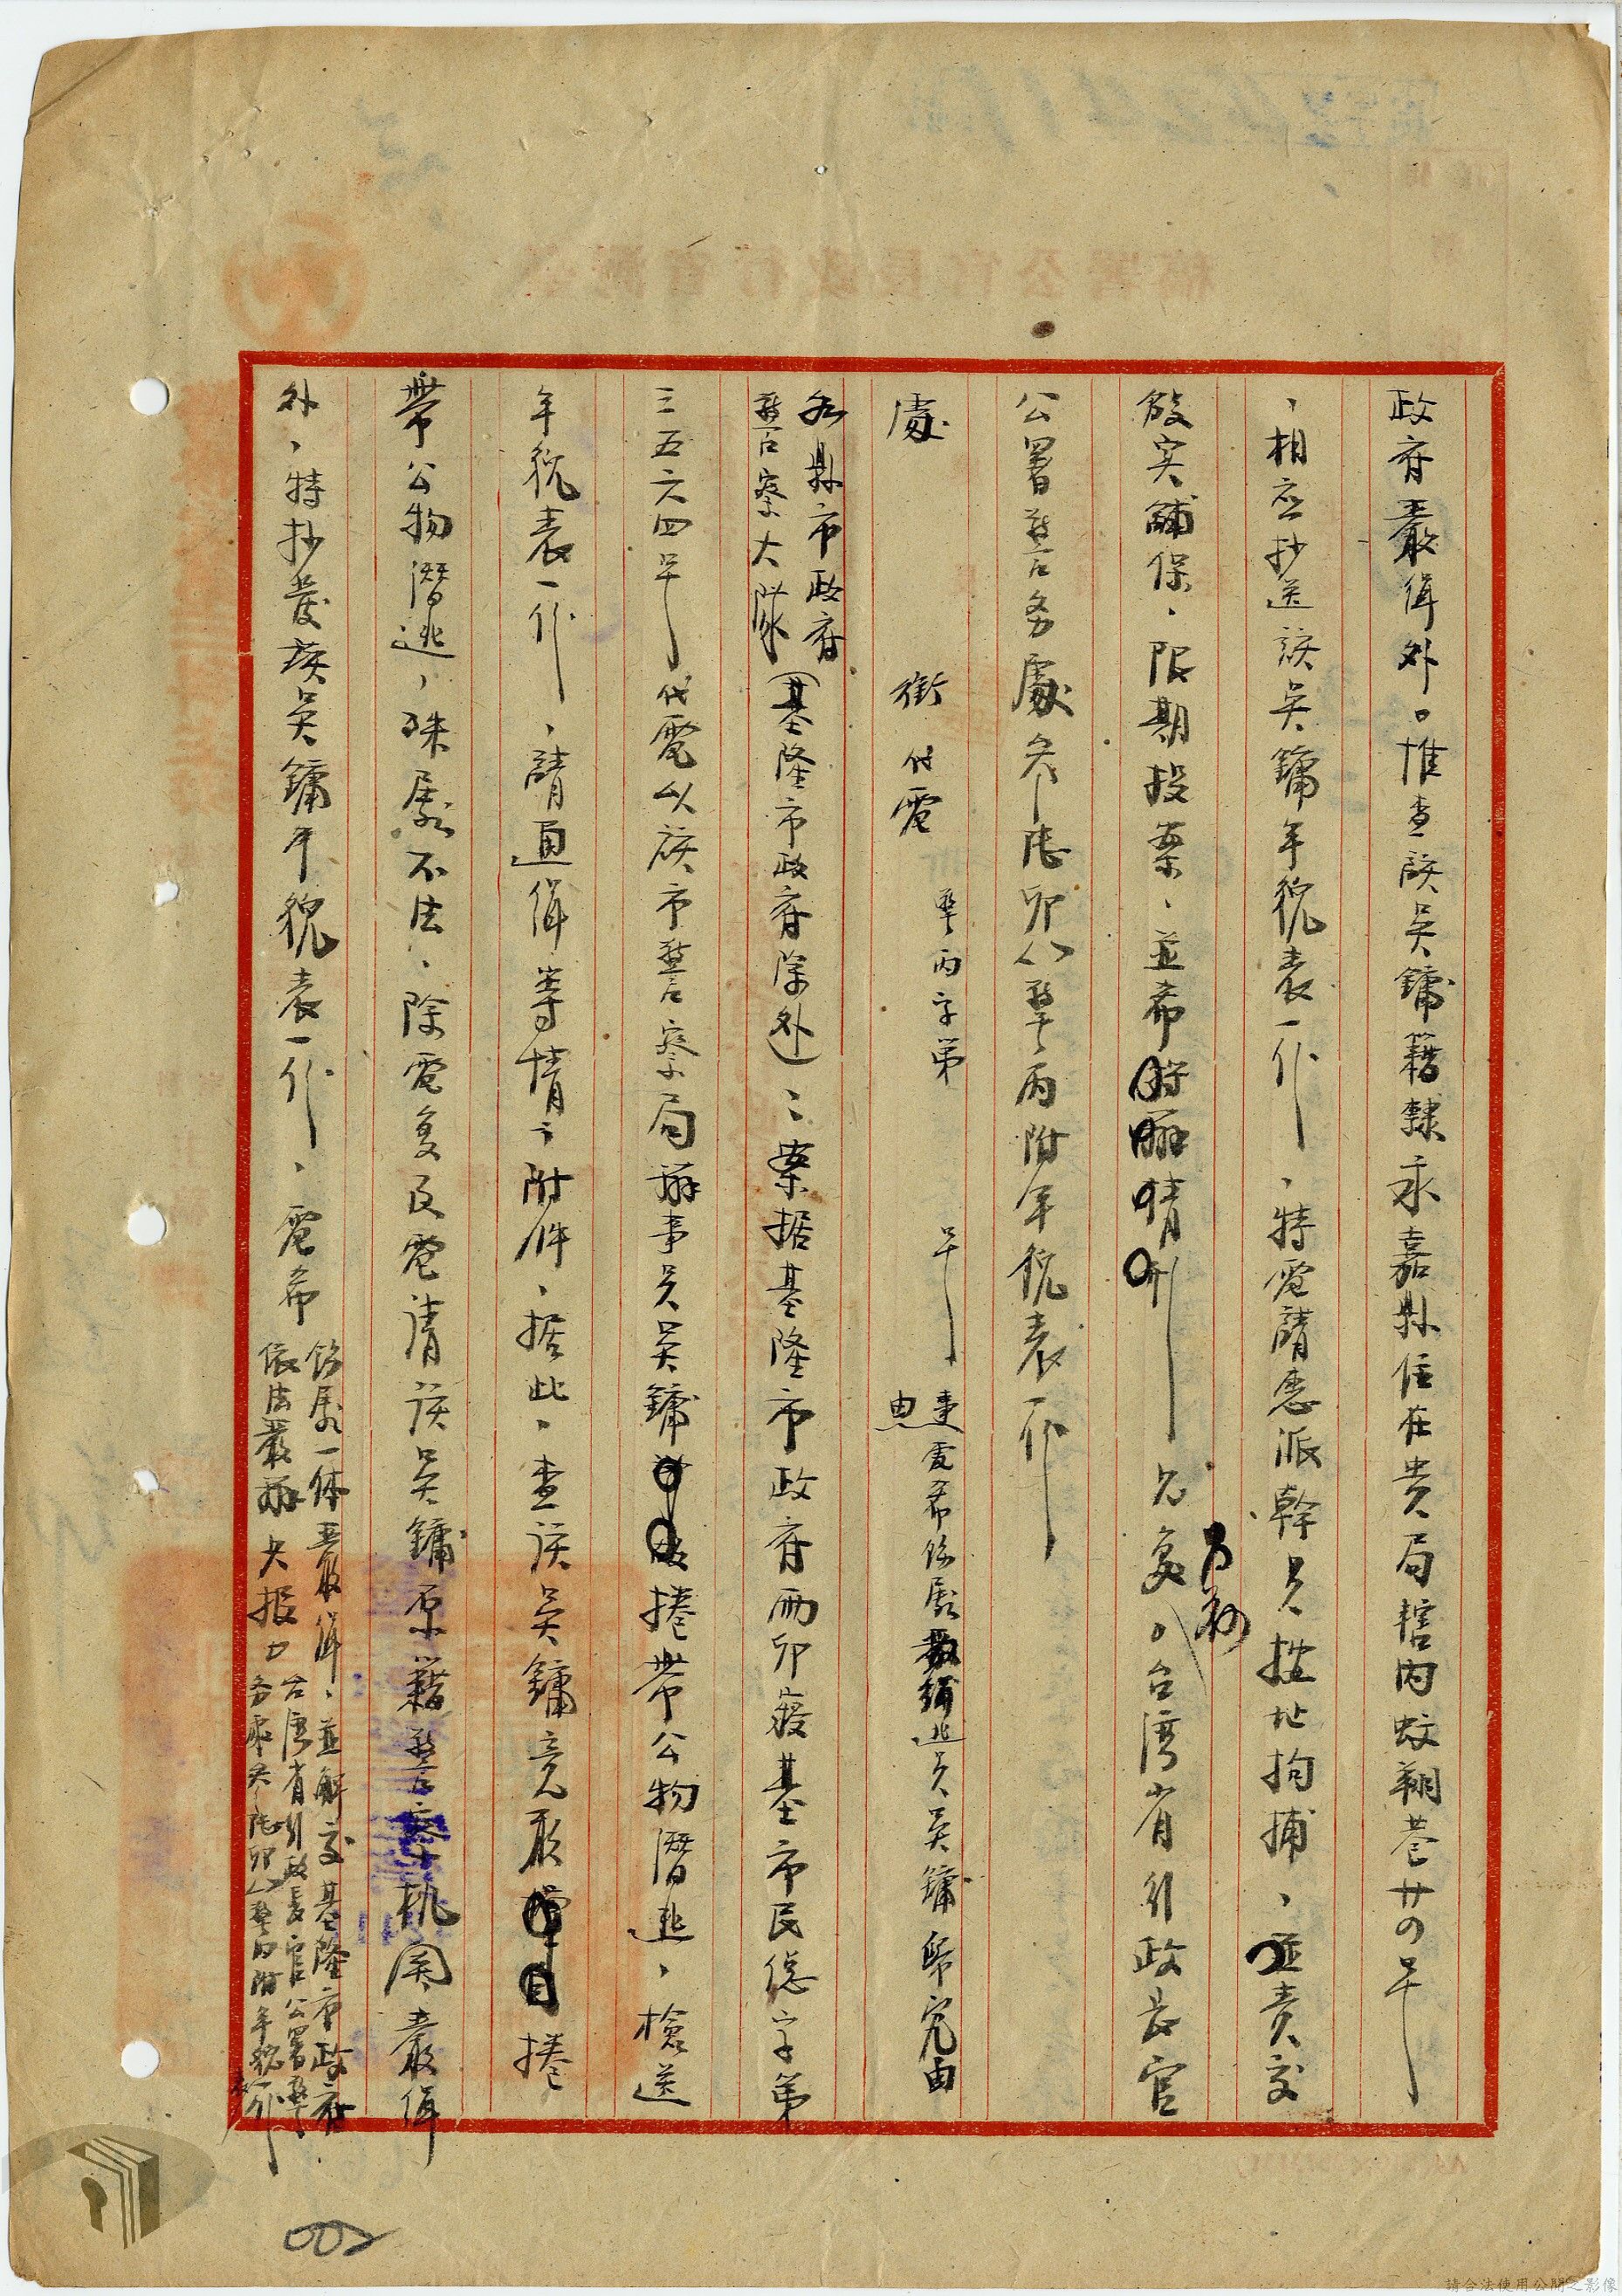 政府嚴緝外。惟查該吳鏞籍隸永嘉縣住在貴局轄内蚊翔巷廿四号
、相应抄送該吳鏞年貌表一份、特電請惠派幹員按址拘捕、並責交
殷实鋪保、限期投案、並希
見复。台湾省行政長官
公署警务處参陸卯八警丙附年貌表一份
處 銜 代電 警丙字第 号
事由 電希飭屬嚴緝逃員吳鏞歸究由
各縣市政府
警察大隊
(基隆市政府除外):案据基隆市政府兩卯寢基市民德字第
三五六四号代電以該市警察局辦事員吳鏞捲帶公物潛逃、檢送
年貌表一份、請通緝等情、附件、据此、查該吳鏞竟敢捲
帶公物潛逃、殊屬不法、除電复及電请該吳鏞原籍警察机関嚴緝
外、特抄發該吳鏞年貌表一份、電希
飭屬一体嚴緝、並解交基隆市政府
依法嚴辦具報。台湾省行政長官公署警
务處参陸卯八警丙附年貌表一份
002
台灣省行政長官公署稿
請合法使用公開之影像